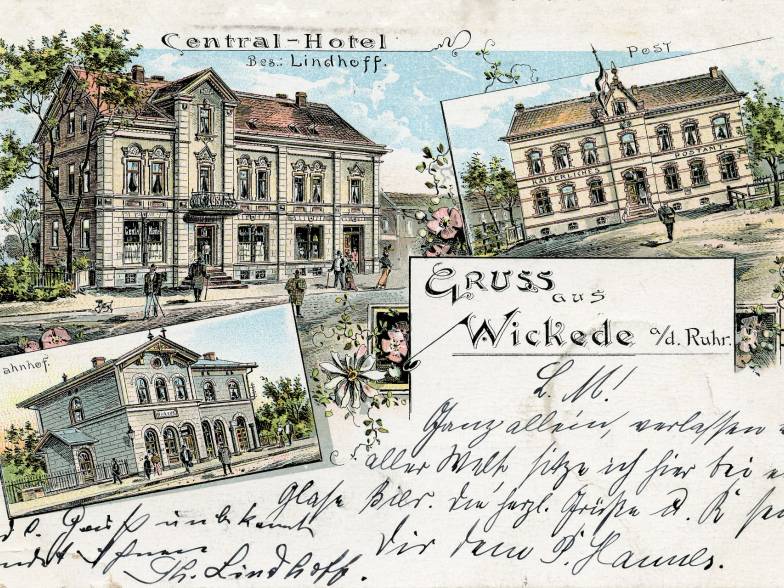 Central-Hotel
Bes.: Lindhoff.
Post
KAISERLICHES POSTAMT.
ahnhof.
Gruss
aus
Wickede a/d. Ruhr.
L. M!
Ganz allein, verlassen
aller Welt, sitze ich hier bei
Glase Bier. Die herzl. Grüße
Dir dem P. Hannes.
Gruß unbekannt
Ihnen
Th. Lindhoff.